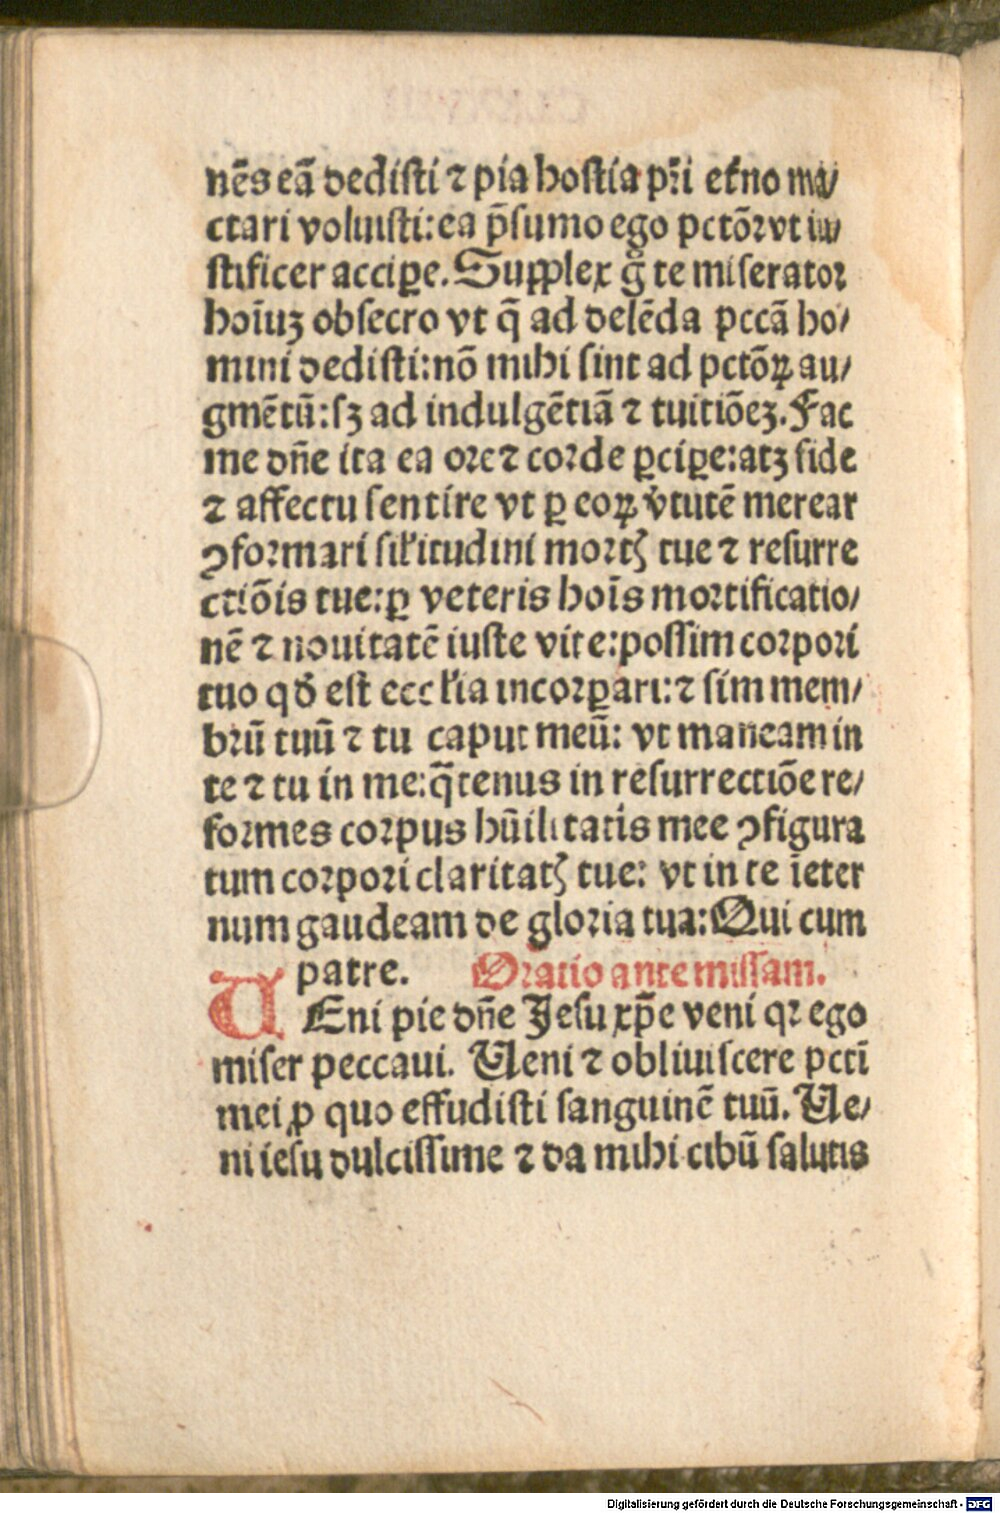 nēs eā dedisti ⁊ pia hostia pr̄i etⁱno ma/
ctari voluisti: ea p̄sumo ego pctōꝛ vt iu/
stificer acciꝑe. Supplex g̊ te miseratoꝛ
hoīuꝫ obsecro vt q̄ ad delēda pccā ho/
mini dedisti: nō mihi sint ad pctōꝝ au/
gmētū: sꝫ ad indulgētiā ⁊ tuitiōeꝫ. Fac
me dn̄e ita ea oꝛe ⁊ coꝛde ꝑciꝑe: atꝫ fide
⁊ affectu sentire vt ꝑ eoꝝ v̓tutē merear
ꝯfoꝛmari sil̓itudini moꝛtꝭ tue ⁊ resurre
ctiōis tue: ꝑ veteris hoīs moꝛtificatio/
nē ⁊ nouitatē iuste vite: possim coꝛpoꝛi
tuo qđ est eccl̓ia incoꝛꝑari: ⁊ sim mem/
brū tuū ⁊ tu caput meū: vt maneam in
te ⁊ tu in me: q̄tenus in resurrectiōe re/
foꝛmes coꝛpus hūilitatis mee ꝯfigura
tum coꝛpoꝛi claritatꝭ tue: vt in te īeter
num gaudeam de gloꝛia tua: Qui cum
patre. Oꝛatio ante missam.
UEni pie dn̄e Jesu xp̄e veni qꝛ ego
miser peccaui. Ueni ⁊ obliuiscere pctī
mei ꝓ quo effudisti sanguinē tuū. Ue/
ni iesu dulcissime ⁊ da mihi cibū salutis
Digitalisierung gefördert durch die Deutsche Forschungsgemeinschaft - DFG